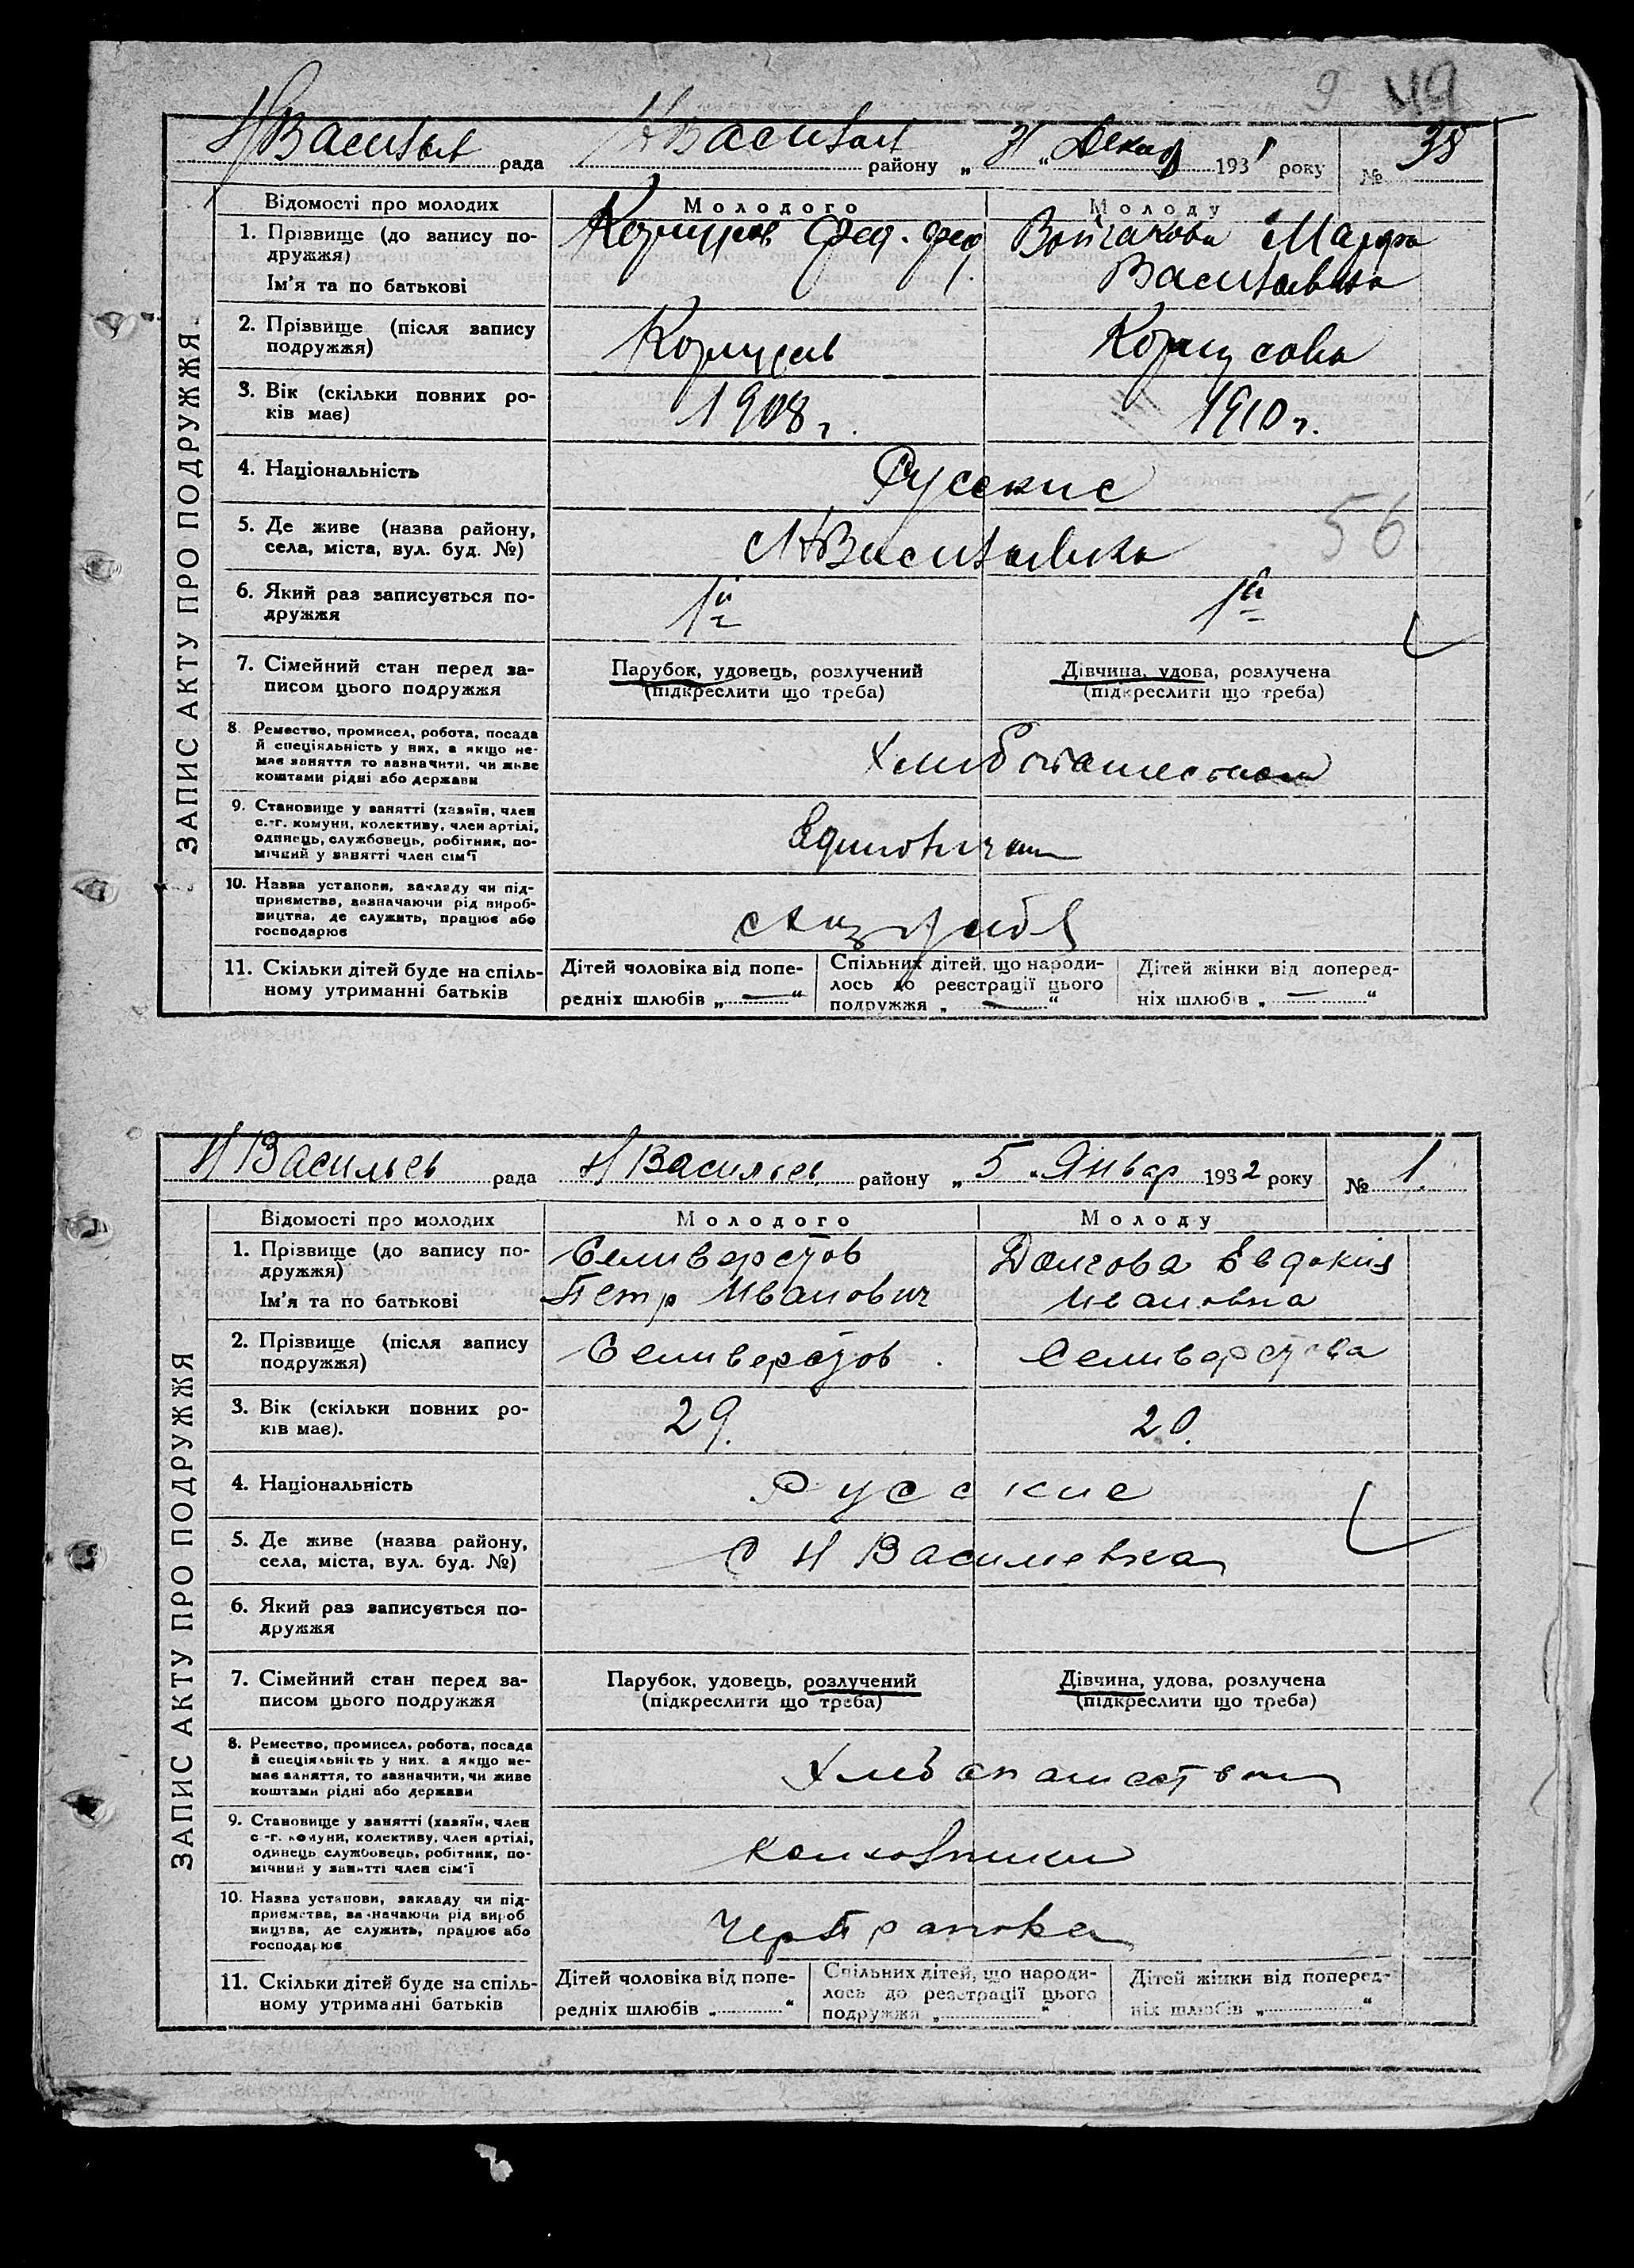 9 49
НВасильев рада НВасильев району „ 31 “ Декаб 1931 року № 38
ЗАПИС АКТУ ПРО ПОДРУЖЖЯ
Відомості про молодих Молодого Молоду
1. Прізвище (до запису по-
дружжя)
Фед. Фед Марфа
Ім'я та по батькові Васильевна
2. Прізвище (після запису
подружжя)
3. Вік (скільки повних ро-
ків має) 1908 г. 1910 г.
4. Національність Русские
5. Де живе (назва району,
села, міста, вул. буд. №) НВасильевка 56
6. Який раз записується по-
дружжя 1й 1й
7. Сімейний стан перед за-
писом цього подружжя
Парубок, удовець, розлучений Дівчина, удова, розлучена
(підкреслити що треба) (підкреслити що треба)
8. Ремество, промисел, робота, посада
й спеціяльність у них, а якщо не-
має заняття то зазначити, чи живе
коштами рідні або держави
Хлибопашеством
9. Становище у занятті (хазяїн, член
с.-г. комуни, колективу, член артілі,
одинець, службовець, робітник, по-
мічний у занятті член сім'ї
10. Назва установи, закладу чи під-
приємства, зазначаючи рід вироб-
ництва, де служить, працює або
господарює
11. Скільки дітей буде на спіль-
ному утриманні батьків
Дітей чоловіка від попе-
редніх шлюбів „ — “
Спільних дітей, що народи-
лось до реєстрації цього
подружжя „ — “
Дітей жінки від поперед-
ніх шлюбів „ — “
Н Васильев рада Н Васильев району „ 5 “ Январ 1932 року № 1.
ЗАПИС АКТУ ПРО ПОДРУЖЖЯ
Відомості про молодих Молодого Молоду
1. Прізвище (до запису по-
дружжя)
Ім'я та по батькові
Селиверстов
Петр Иванович
Долгова Евдокия
Ивановна
2. Прізвище (після запису
подружжя)
Селиверстов Селиверстова
3. Вік (скільки повних ро-
ків має). 29. 20.
4. Національність Русские
5. Де живе (назва району,
села, міста, вул. буд. №) С Н Василиевка
6. Який раз записується по-
дружжя
7. Сімейний стан перед за-
писом цього подружжя
Парубок, удовець, розлучений Дівчина, удова, розлучена
(підкреслити що треба) (підкреслити що треба)
8. Ремество, промисел, робота, посада
й спеціяльність у них, а якщо не-
має заняття, то зазначити, чи живе
коштами рідні або держави
Хлибопашеством
9. Становище у занятті (хазяїн, член
с.-г. комуни, колективу, член артілі,
одинець службовець, робітник, по-
мічний у занятті член сім'ї
колхозники
10. Назва установи, закладу чи під-
приємства, зазначаючи рід вироб
ництва, де служить, працює або
господарює
11. Скільки дітей буде на спіль-
ному утриманні батьків
Дітей чоловіка від попе-
редніх шлюбів „ “
Спільних дітей, що народи-
лось до реєстрації цього
подружжя „ “
Дітей жінки від поперед-
ніх шлюбів „ “